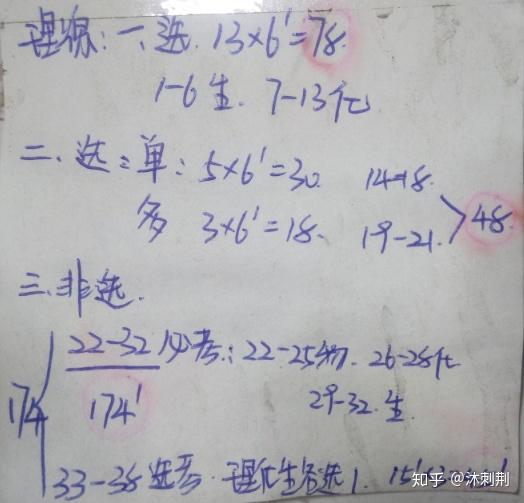 理综:一、选 13×6'=78.
1-6生. 7-13化
二、选:单:5×6'=30. 14-18.
多 3×6'=18. 19-21. >48.
三、非选.
22-32必考:22-25物. 26-28化
174 174' 29-32.生
33-38选考. 理化生各选1. 15'
知乎 @沐刺荆